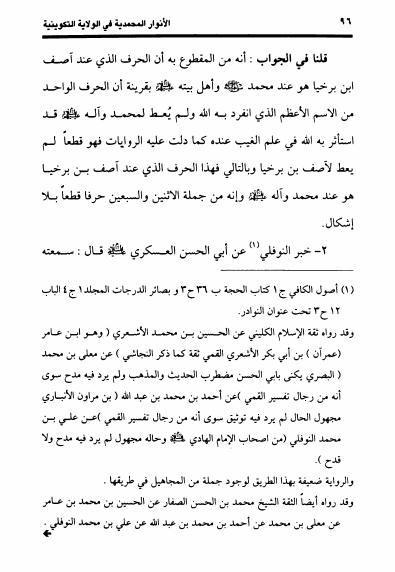 ٩٦ الأنوار المحمدية في الولاية التكوينية
قلنا في الجواب : أنه من المقطوع به أن الحرف الذي عند آصف
ابن برخيا هو عند محمد ﷺ وأهل بيته بقرينة أن الحرف الواحد
من الاسم الأعظم الذي انفرد به الله ولم يُعط لمحمد وآله قد
استأثر به الله في علم الغيب عنده كما دلت عليه الروايات فهو قطعاً لم
يعط لآصف بن برخيا وبالتالي فهذا الحرف الذي عند آصف بن برخيا
هو عند محمد وآله وإنه من جملة الاثنين والسبعين حرفا قطعاً بلا
إشكال.
٢- خبر النوفلي(١) عن أبي الحسن العسكري قال : سمعته
(١) أصول الكافي ج١ كتاب الحجة ب ٣٦ ح٣ و بصائر الدرجات المجلد١ ج٤ الباب
١٢ ح٣ تحت عنوان النوادر.
وقد رواه ثقة الإسلام الكليني عن الحسين بن محمد الأشعري ( وهو ابن عامر
(عمران ) بن أبي بكر الأشعري القمي ثقة كما ذكر النجاشي ) عن معلى بن محمد
( البصري يكنى بابي الحسن مضطرب الحديث والمذهب ولم يرد فيه مدح سوى
أنه من رجال تفسير القمي )عن أحمد بن محمد بن عبد الله ( بن مراون الأنباري
مجهول الحال لم يرد فيه توثيق سوى أنه من رجال تفسير القمي )عن علي بن
محمد النوفلي (من اصحاب الإمام الهادي وحاله مجهول لم يرد فيه مدح ولا
قدح ).
والرواية ضعيفة بهذا الطريق لوجود جملة من المجاهيل في طريقها .
وقد رواه أيضاً الثقة الشيخ محمد بن الحسن الصفار عن الحسين بن محمد بن عامر
عن معلى بن محمد عن أحمد بن محمد بن عبد الله عن علي بن محمد النوفلي .